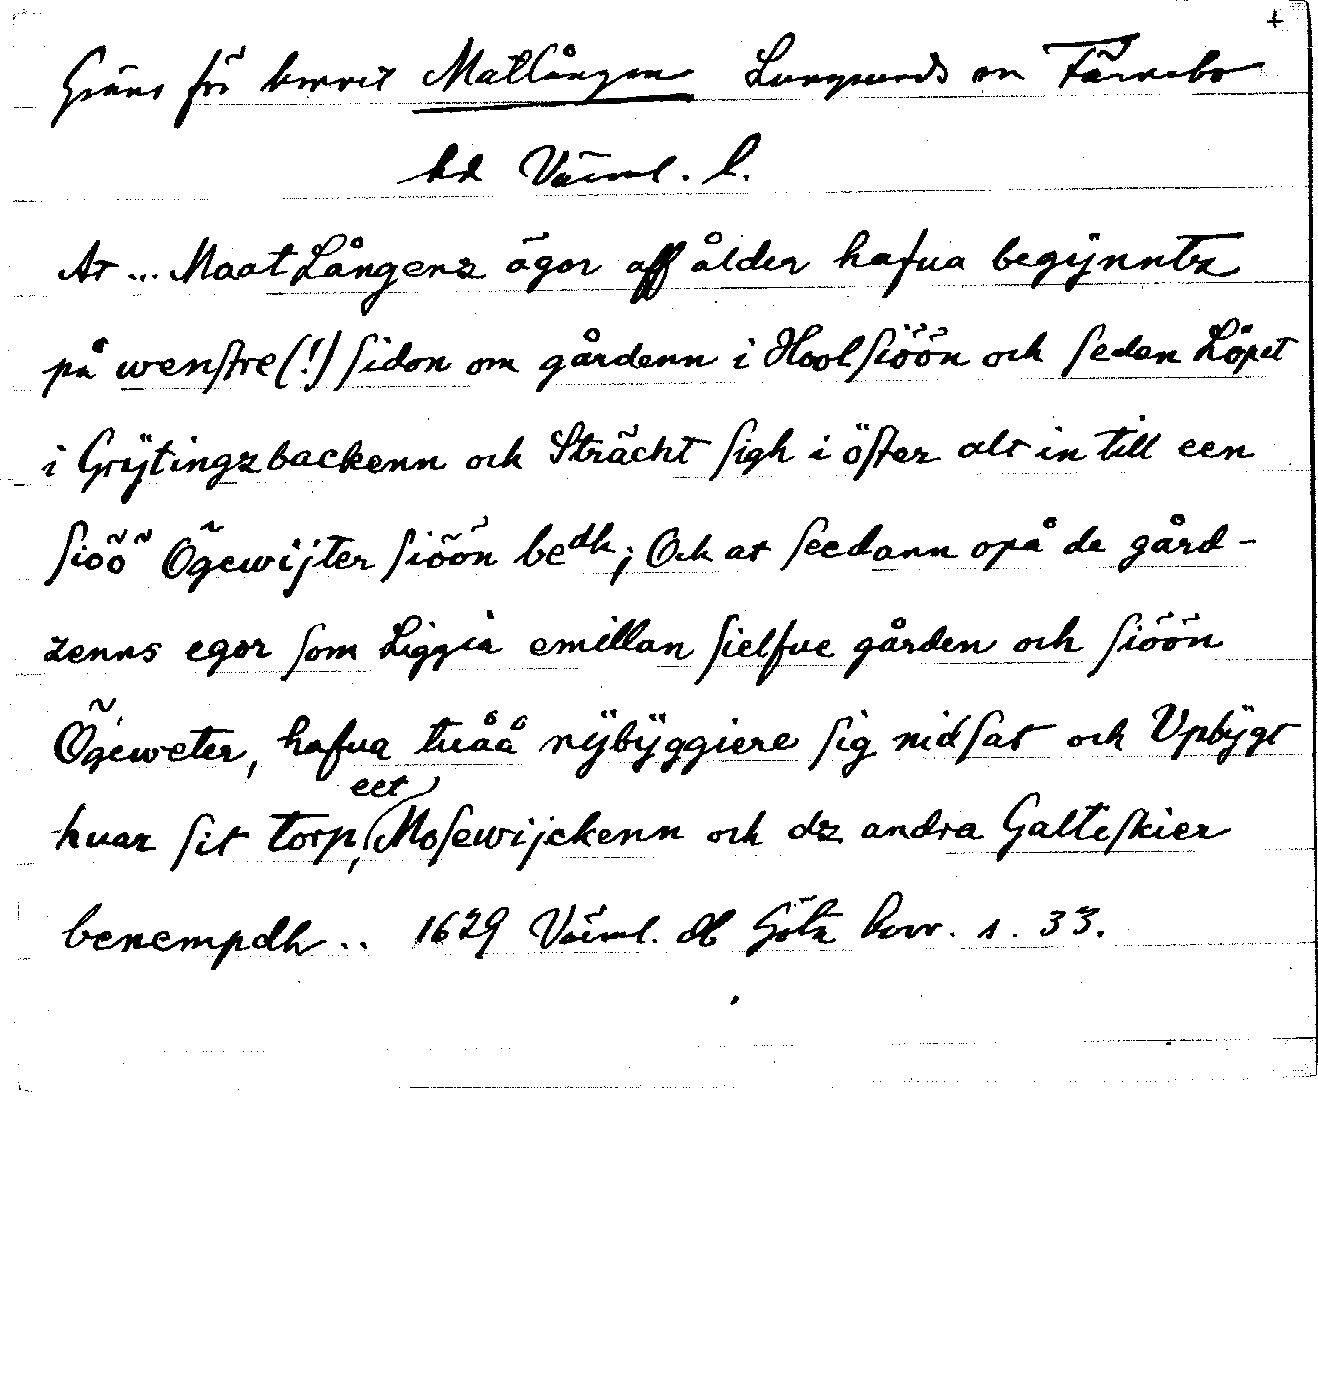 +
Gräns för kvvret Matlången Lungsunds sn Färnebo
hd Värml. l.
At ... Maat Långenz ägor aff ålder hafua begÿnntz
på wenstre (!) sidon om gårdenn i Hoolsiöön och sedan Löpet
i Grÿtingzbackenn och Strächt sigh i öster alt in till een
siöö Ögewijter siöön bedh; Och at seedann opå de gård-
zenns egor som Liggia emillan sielfue gården och siöön
Ögeweter, hafua tuåå nÿbÿggiere sig nidsat och Vpbÿgt
huar sit torp, eet Mosewijckenn och dz andra Galteskier
benempdh .. 1629 Värml. db Göta hovr. s. 33.